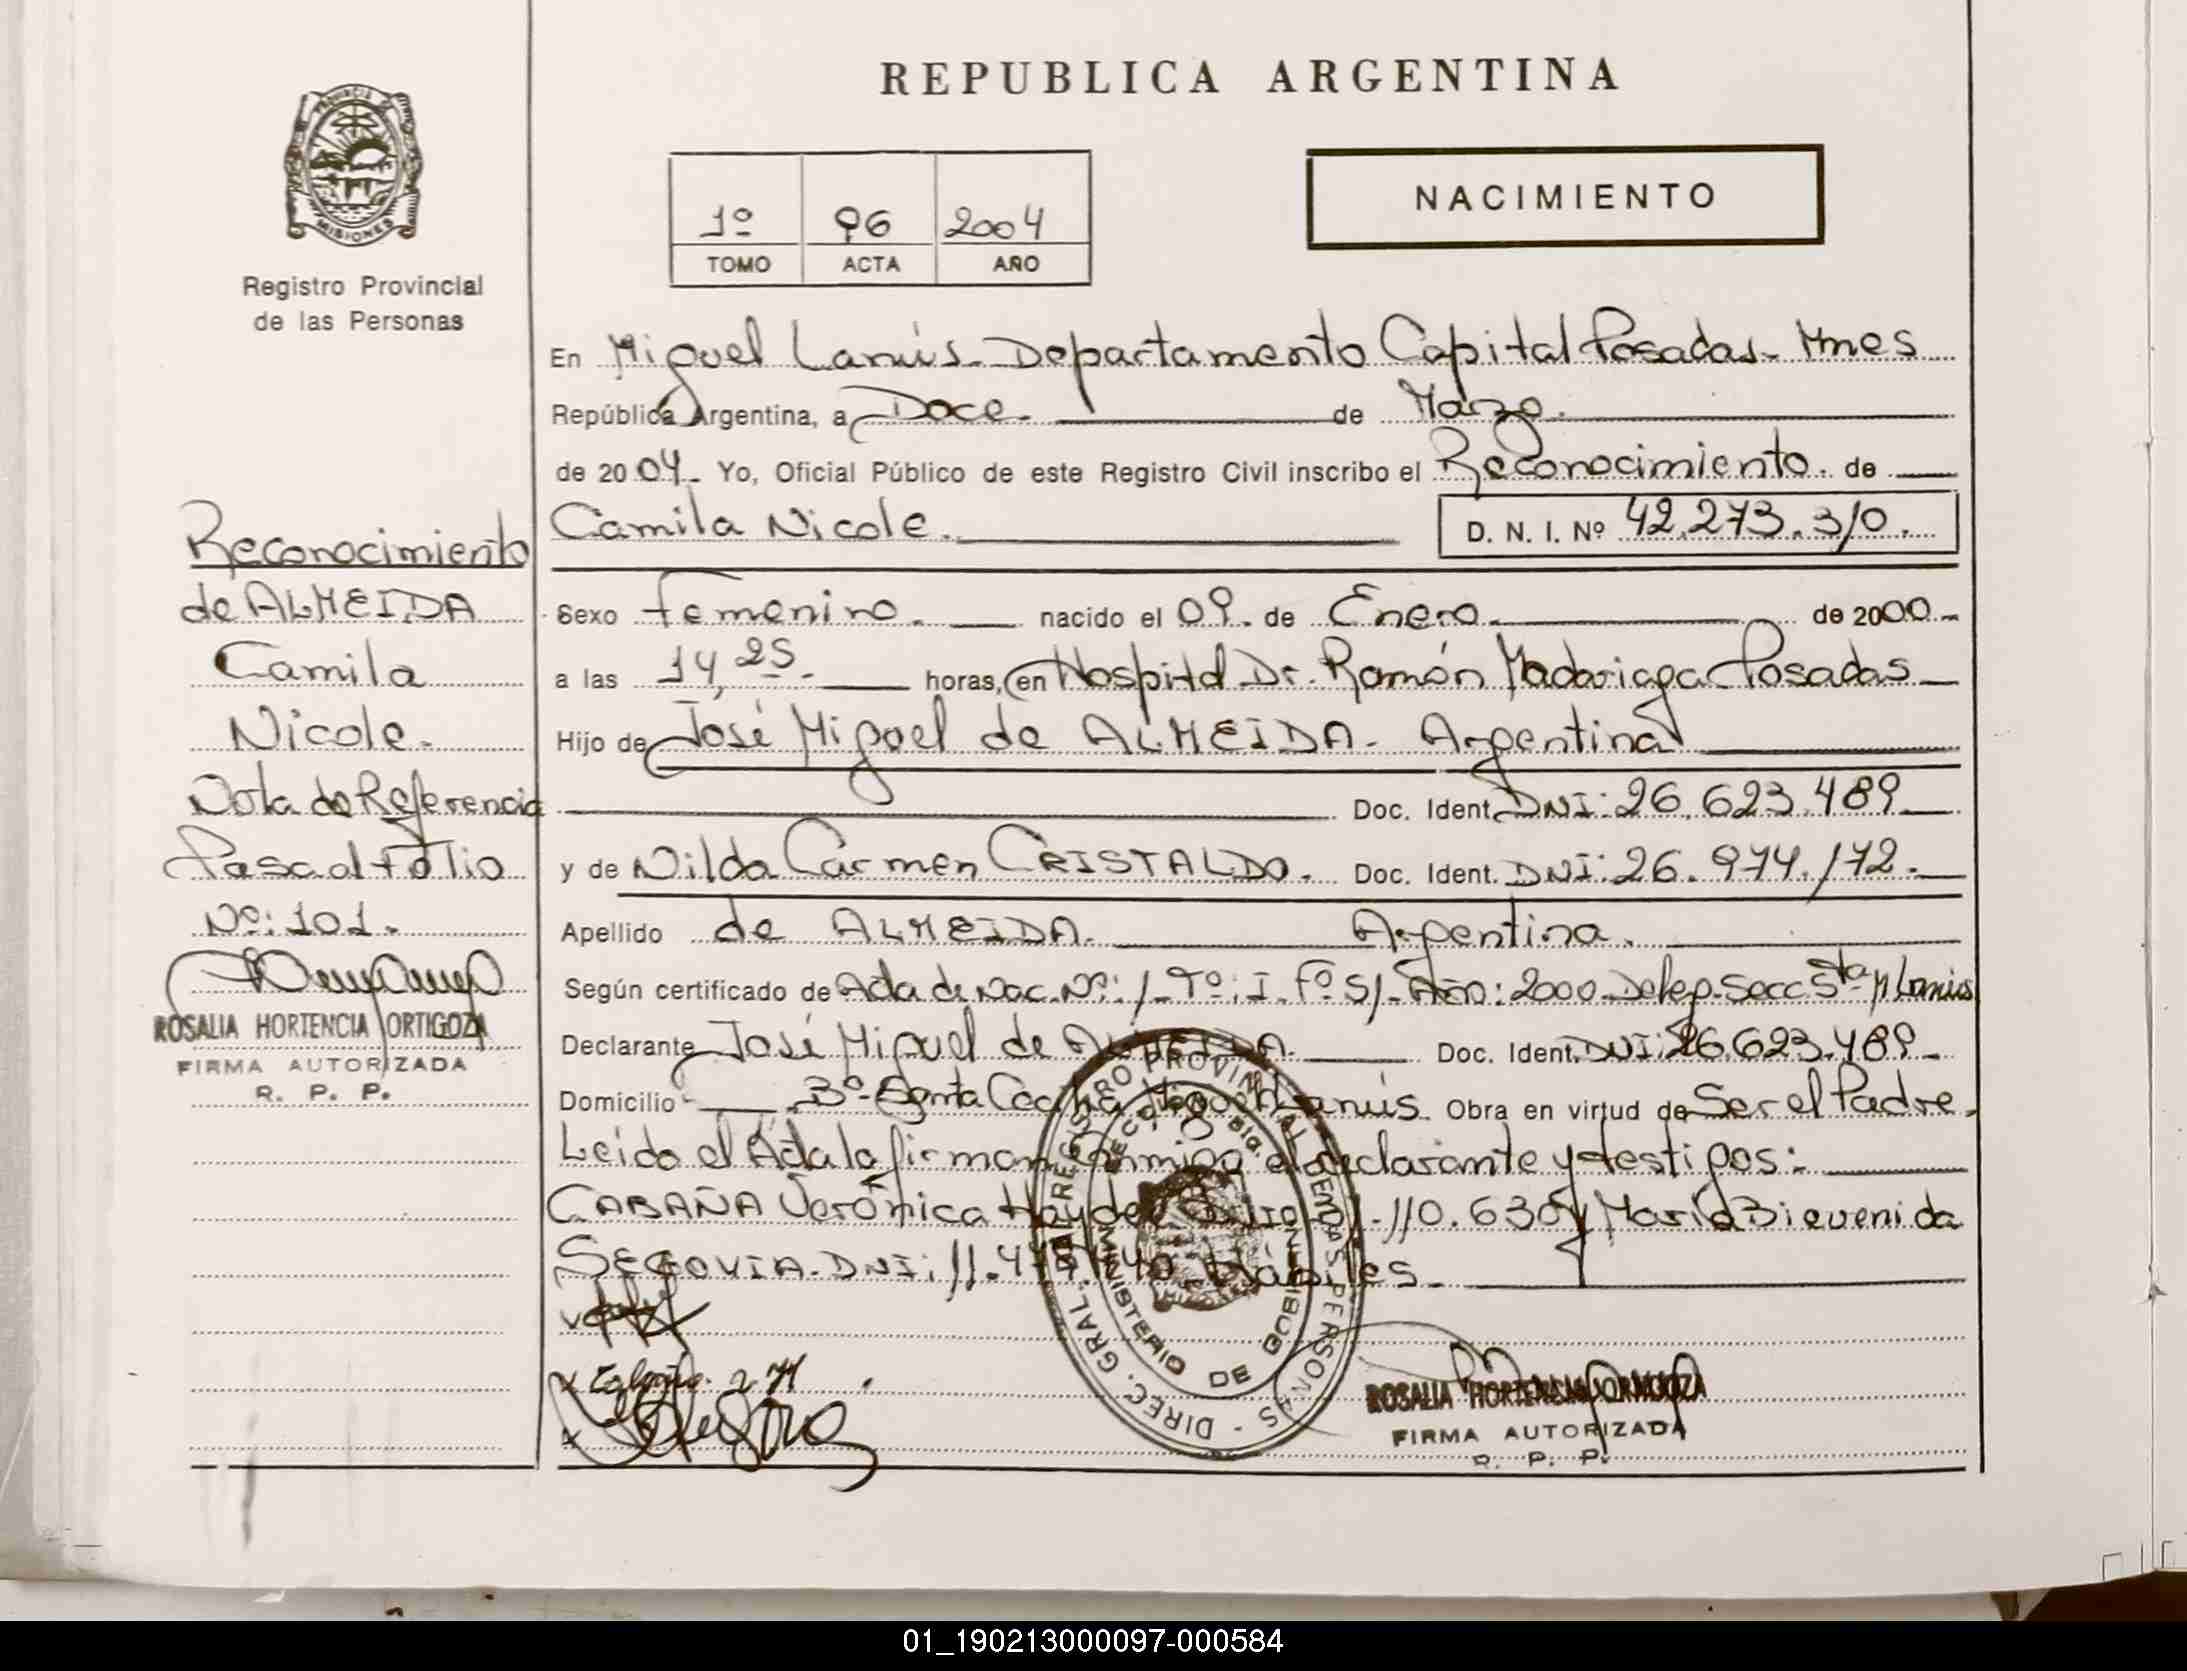 REPUBLICA ARGENTINA
PROVINCIA DE
MISIONES
Registro Provincial
de las Personas
1º 96 2004
TOMO ACTA AÑO
NACIMIENTO
En Miguel Lanús. Departamento Capital Posadas. Mnes
República Argentina, a Doce. de Marzo.
de 2004. Yo, Oficial Público de este Registro Civil inscribo el Reconocimiento. de
Camila Nicole. D. N. I. Nº 42.273.310.
Sexo Femenino. nacido el 09. de Enero. de 2000.
a las 14,25. horas, en Hospital Dr. Ramón Madariaga Posadas
Hijo de José Miguel de ALMEIDA. Argentina
Doc. Ident. DNI: 26.623.489
y de Nilda Carmen CRISTALDO. Doc. Ident. DNI: 26.974.172.
Apellido de ALMEIDA. Argentina.
Según certificado de Acta de Nac. Nº: 1. Tº: I. Fº 51. Año: 2000. Deleg. Secc Sta M Lanús
Declarante José Miguel de ALMEIDA. Doc. Ident. DNI: 26.623.489.
Domicilio Bº Santa Cecilia Miguel Lanús. Obra en virtud de Ser el Padre.
Leido el Acta la firman conmigo el declarante y testigos:
CABAÑA Verónica Haydee 110.630 y María Bievenida
SEGOVIA. DNI: 11.4 440 Hábiles.
Reconocimiento
de ALMEIDA
Camila
Nicole.
Nota de Referencia
Pasa al Folio
Nº: 101.
ROSALIA HORTENCIA ORTIGOZA
FIRMA AUTORIZADA
R. P. P.
DIREC. GRAL. REGISTRO PROVINCIAL DE LAS PERSONAS
MINISTERIO DE GOBIERNO
ROSALIA HORTENCIA ORTIGOZA
FIRMA AUTORIZADA
R. P. P.
01_190213000097-000584